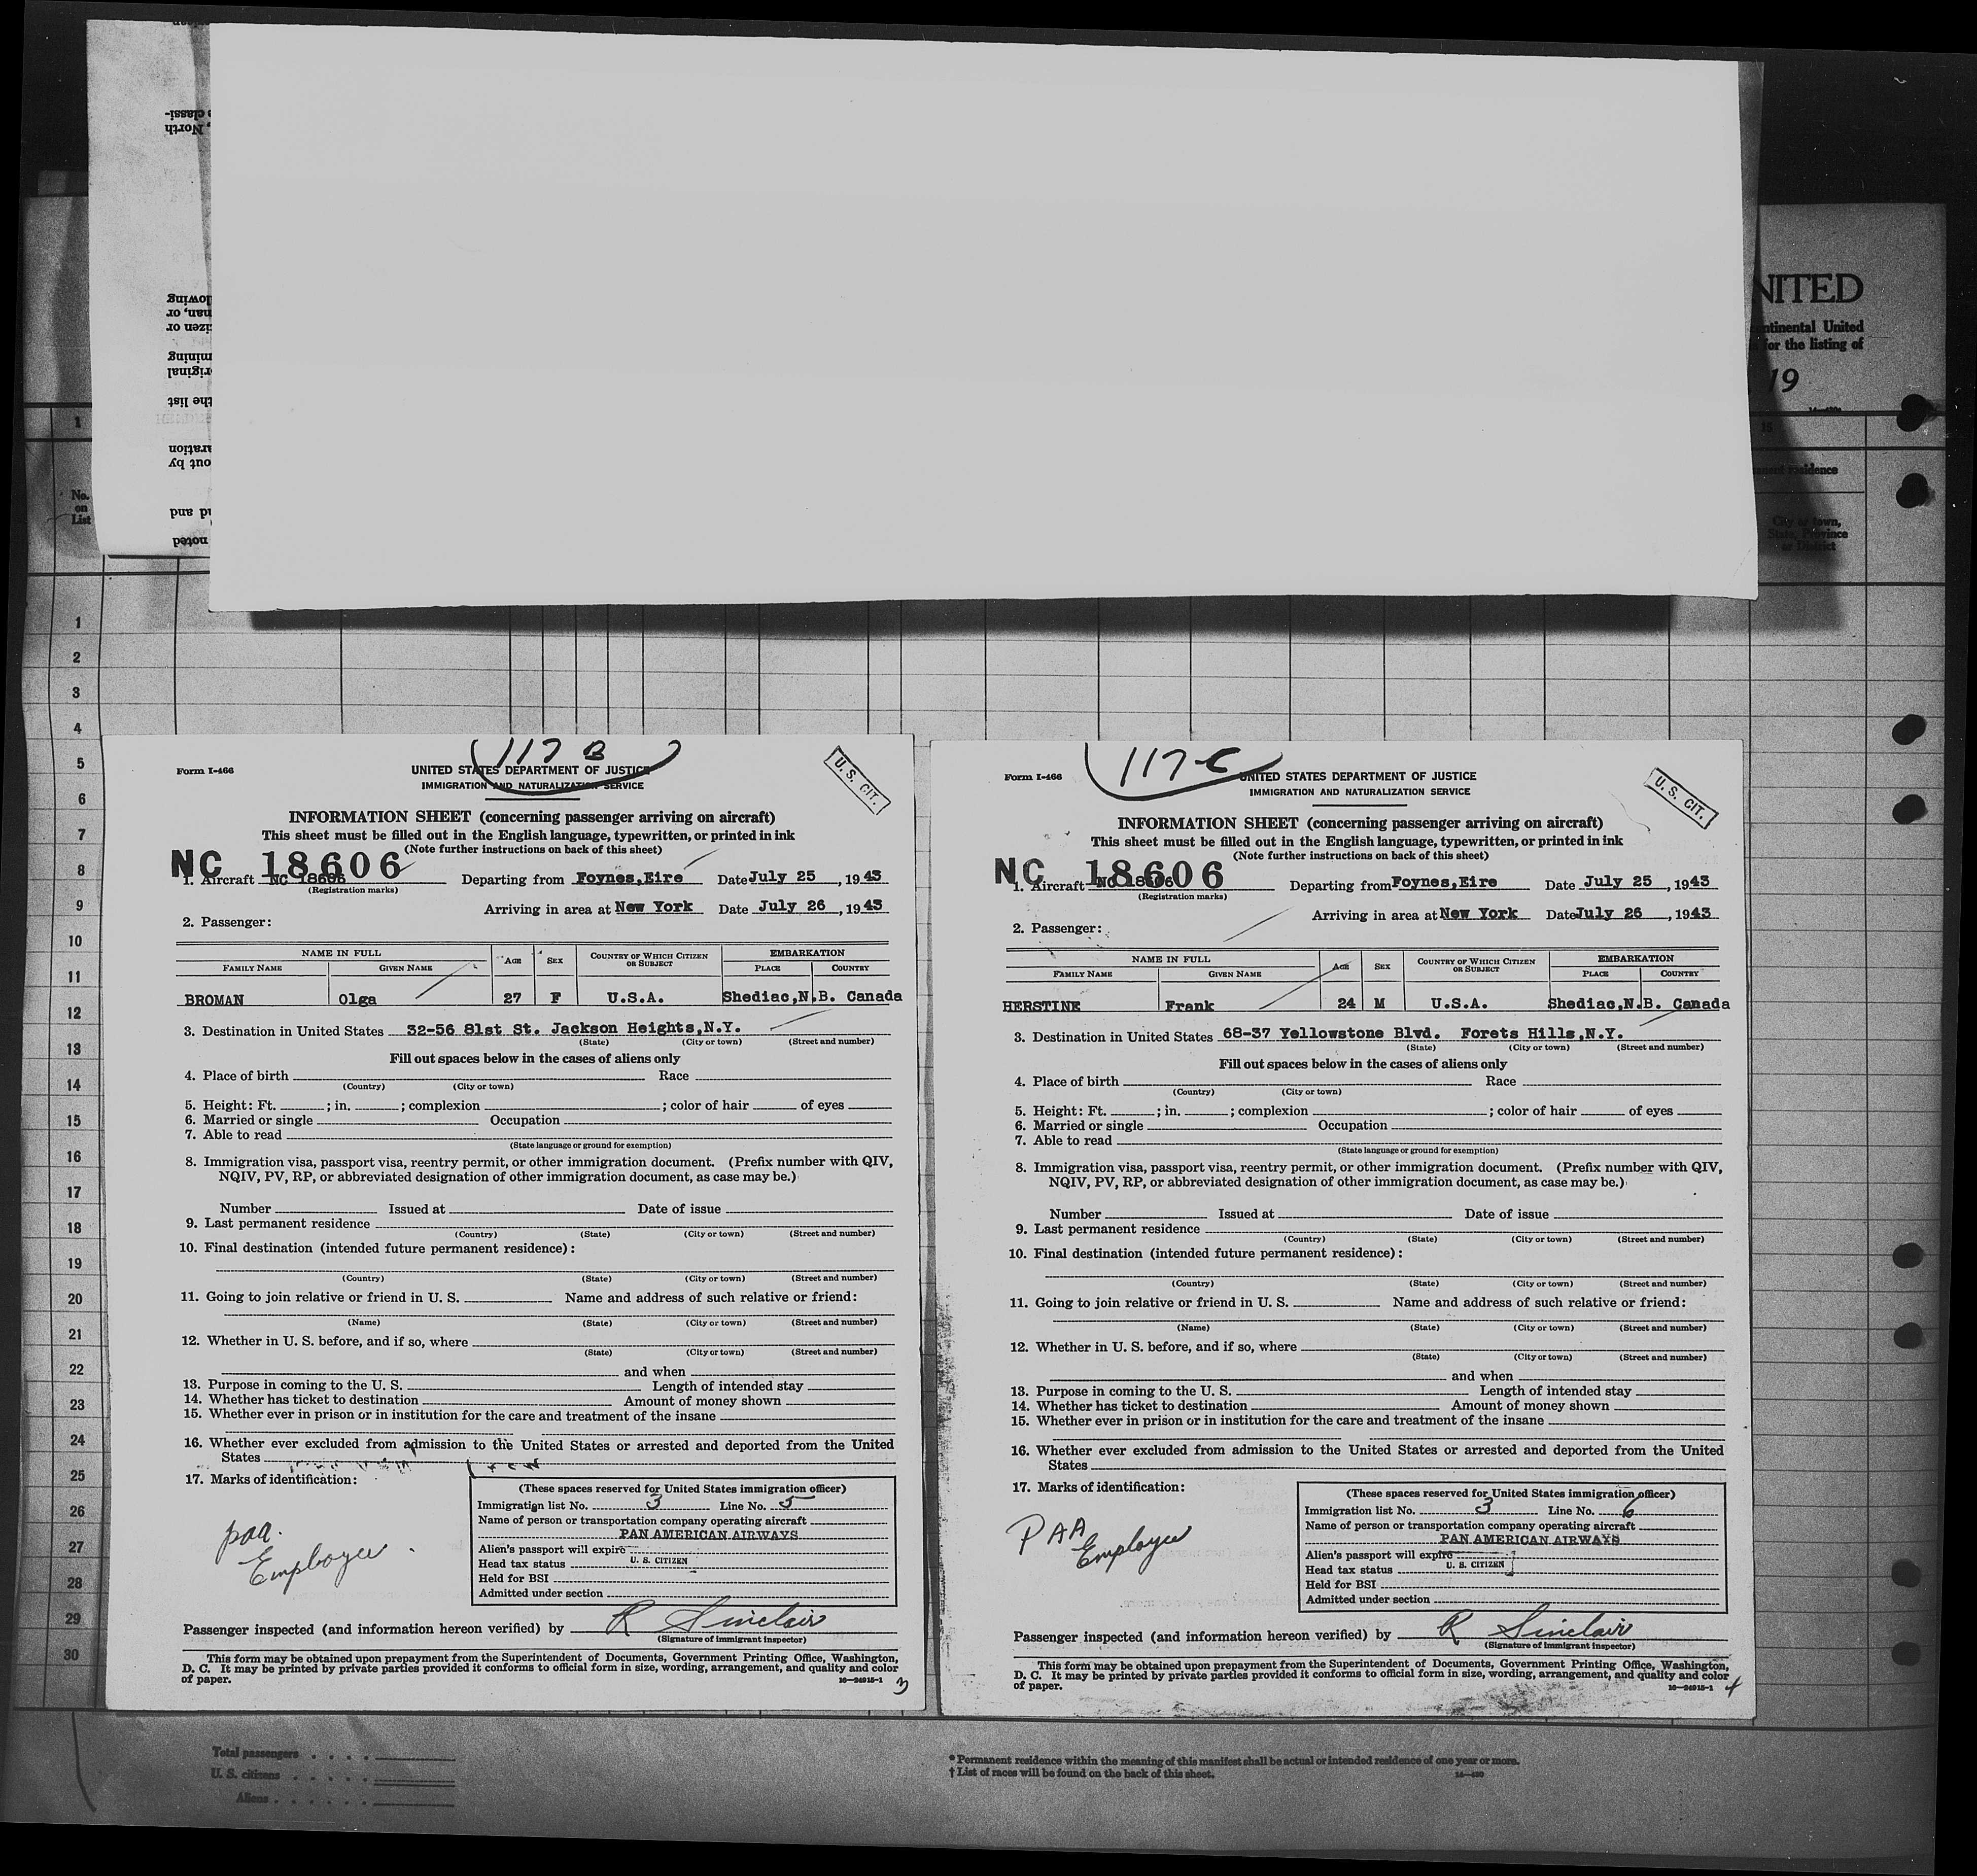 classi-
, North
lowing
nan, or
izen or
mining
riginal
the list
aration
out by
nd and
noted
NITED
ntinental United
for the listing of
19
1
15
residence
No.
on
List
City or town,
State, Province
or District
1
2
3
4
5
6
7
8
9
10
11
12
13
14
15
16
17
18
19
20
21
22
23
24
25
26
27
28
29
30
117 B
Form I-466
UNITED STATES DEPARTMENT OF JUSTICE
IMMIGRATION AND NATURALIZATION SERVICE
U. S. CIT.
INFORMATION SHEET (concerning passenger arriving on aircraft)
This sheet must be filled out in the English language, typewritten, or printed in ink
(Note further instructions on back of this sheet)
NC 18606
1. Aircraft NC 18606 Departing from Foynes,Eire Date July 25, 1943
(Registration marks)
Arriving in area at New York Date July 26, 1943
2. Passenger:
NAME IN FULL AGE SEX COUNTRY OF WHICH CITIZEN OR SUBJECT EMBARKATION
FAMILY NAME GIVEN NAME PLACE COUNTRY
BROMAN Olga 27 F U.S.A. Shediac,N.B. Canada
3. Destination in United States 32-56 81st St. Jackson Heights,N.Y.
(State) (City or town) (Street and number)
Fill out spaces below in the cases of aliens only
4. Place of birth Race
(Country) (City or town)
5. Height: Ft. ; in. ; complexion ; color of hair of eyes
6. Married or single Occupation
7. Able to read
(State language or ground for exemption)
8. Immigration visa, passport visa, reentry permit, or other immigration document. (Prefix number with QIV,
NQIV, PV, RP, or abbreviated designation of other immigration document, as case may be.)
Number Issued at Date of issue
9. Last permanent residence
(Country) (State) (City or town) (Street and number)
10. Final destination (intended future permanent residence):
(Country) (State) (City or town) (Street and number)
11. Going to join relative or friend in U. S. Name and address of such relative or friend:
(Name) (State) (City or town) (Street and number)
12. Whether in U. S. before, and if so, where
(State) (City or town) (Street and number)
and when
13. Purpose in coming to the U. S. Length of intended stay
14. Whether has ticket to destination Amount of money shown
15. Whether ever in prison or in institution for the care and treatment of the insane
16. Whether ever excluded from admission to the United States or arrested and deported from the United
States
17. Marks of identification:
paa.
Employee.
(These spaces reserved for United States immigration officer)
Immigration list No. 3 Line No. 5
Name of person or transportation company operating aircraft
PAN AMERICAN AIRWAYS
Alien's passport will expire
Head tax status U. S. CITIZEN
Held for BSI
Admitted under section
Passenger inspected (and information hereon verified) by R Sinclair
(Signature of immigrant inspector)
This form may be obtained upon prepayment from the Superintendent of Documents, Government Printing Office, Washington,
D. C. It may be printed by private parties provided it conforms to official form in size, wording, arrangement, and quality and color
of paper.
16—24915-1
3
117-C
Form I-466
UNITED STATES DEPARTMENT OF JUSTICE
IMMIGRATION AND NATURALIZATION SERVICE
U. S. CIT.
INFORMATION SHEET (concerning passenger arriving on aircraft)
This sheet must be filled out in the English language, typewritten, or printed in ink
(Note further instructions on back of this sheet)
NC 18606
1. Aircraft NC 18606 Departing from Foynes,Eire Date July 25, 1943
(Registration marks)
Arriving in area at New York Date July 26, 1943
2. Passenger:
NAME IN FULL AGE SEX COUNTRY OF WHICH CITIZEN OR SUBJECT EMBARKATION
FAMILY NAME GIVEN NAME PLACE COUNTRY
HERSTINE Frank 24 M U.S.A. Shediac,N.B. Canada
3. Destination in United States 68-37 Yellowstone Blvd. Forets Hills,N.Y.
(State) (City or town) (Street and number)
Fill out spaces below in the cases of aliens only
4. Place of birth Race
(Country) (City or town)
5. Height: Ft. ; in. ; complexion ; color of hair of eyes
6. Married or single Occupation
7. Able to read
(State language or ground for exemption)
8. Immigration visa, passport visa, reentry permit, or other immigration document. (Prefix number with QIV,
NQIV, PV, RP, or abbreviated designation of other immigration document, as case may be.)
Number Issued at Date of issue
9. Last permanent residence
(Country) (State) (City or town) (Street and number)
10. Final destination (intended future permanent residence):
(Country) (State) (City or town) (Street and number)
11. Going to join relative or friend in U. S. Name and address of such relative or friend:
(Name) (State) (City or town) (Street and number)
12. Whether in U. S. before, and if so, where
(State) (City or town) (Street and number)
and when
13. Purpose in coming to the U. S. Length of intended stay
14. Whether has ticket to destination Amount of money shown
15. Whether ever in prison or in institution for the care and treatment of the insane
16. Whether ever excluded from admission to the United States or arrested and deported from the United
States
17. Marks of identification:
PAA
Employee
(These spaces reserved for United States immigration officer)
Immigration list No. 3 Line No. 6
Name of person or transportation company operating aircraft
PAN AMERICAN AIRWAYS
Alien's passport will expire
Head tax status U. S. CITIZEN
Held for BSI
Admitted under section
Passenger inspected (and information hereon verified) by R Sinclair
(Signature of immigrant inspector)
This form may be obtained upon prepayment from the Superintendent of Documents, Government Printing Office, Washington,
D. C. It may be printed by private parties provided it conforms to official form in size, wording, arrangement, and quality and color
of paper.
16—24915-1
4
Total passengers
U. S. citizens
Aliens
* Permanent residence within the meaning of this manifest shall be actual or intended residence of one year or more.
† List of races will be found on the back of this sheet.